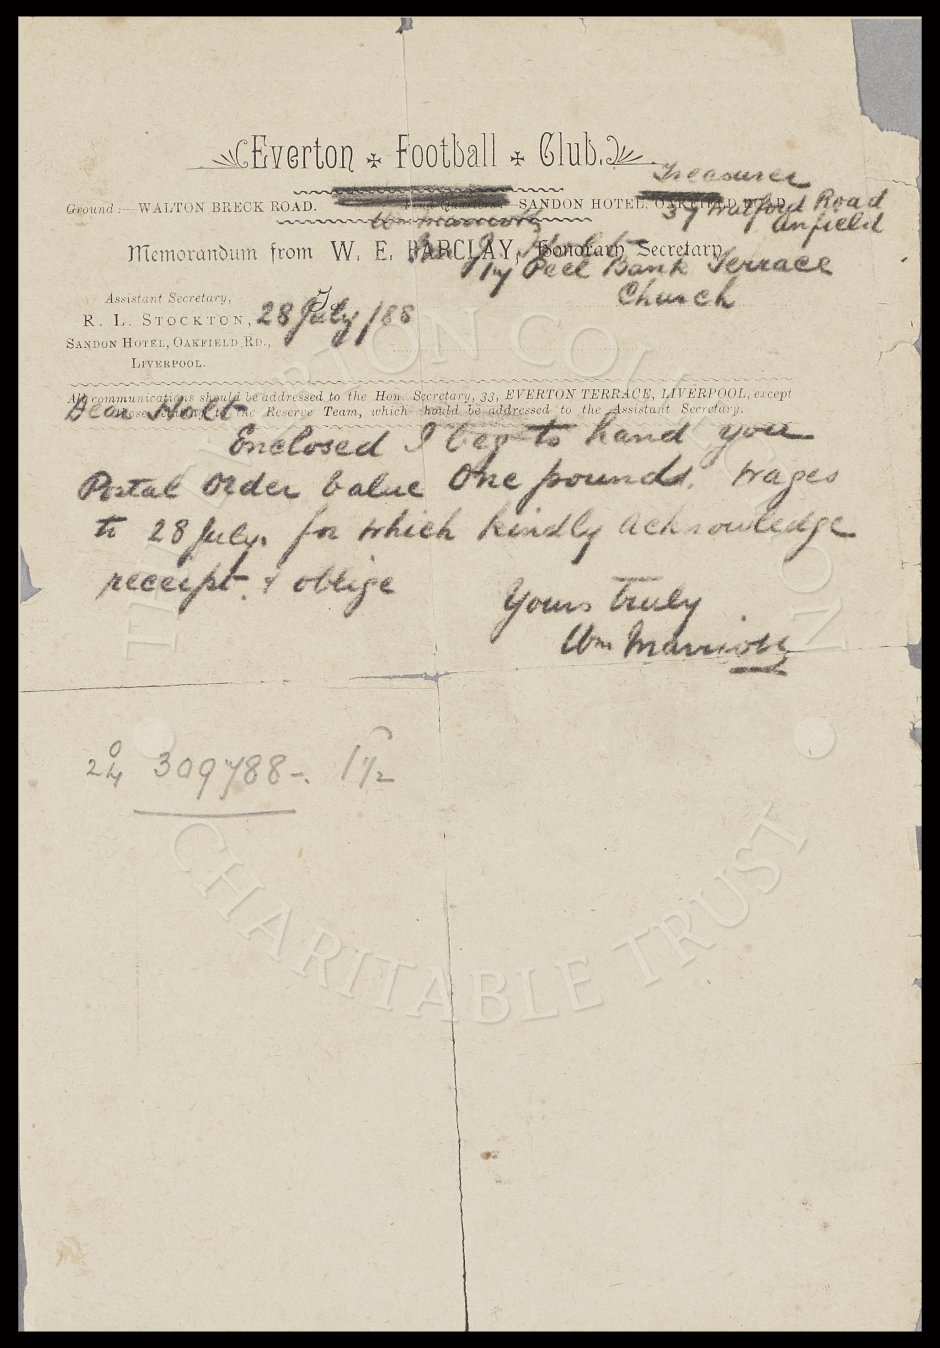 Everton Football Club.
Treasurer
Ground:— WALTON BRECK ROAD. Head Quarters:— SANDON HOTEL, OAKFIELD ROAD.
39 Watford Road
Anfield
Wm Marriott
Memorandum from W. E. BARCLAY, Honorary Secretary
To
Mr J. Holt
17 Peel Bank Terrace
Church
Assistant Secretary,
R. L. STOCKTON,
SANDON HOTEL, OAKFIELD RD.,
LIVERPOOL.
28 July /88
All communications should be addressed to the Hon. Secretary, 33, EVERTON TERRACE, LIVERPOOL, except
those relating to the Reserve Team, which should be addressed to the Assistant Secretary.
Dear Holt
Enclosed I beg to hand you
Postal Order value One pounds. Wages
to 28 July. for which kindly acknowledge
receipt. & oblige
Yours truly
Wm Marriott
309788
THE EVERTON COLLECTION
CHARITABLE TRUST